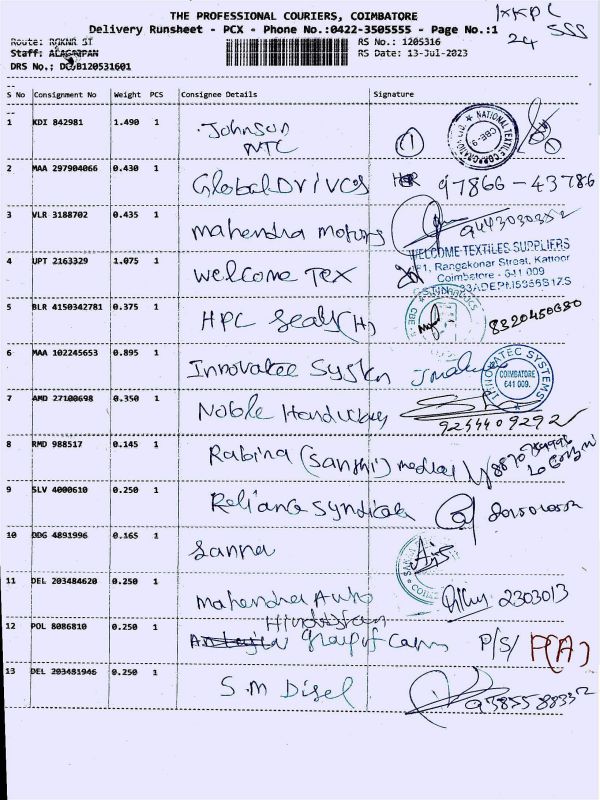 THE PROFESSIONAL COURIERS, COIMBATORE
Delivery Runsheet - PCX - Phone No.:0422-3505555 - Page No.:1
Route: RAKNR ST
RS No.: 1205316
Staff: ALAGAPPAN
RS Date: 13-Jul-2023
DRS No.:
24 SSS
S No Consignment No Weight PCS Consignee Details Signature
1 KDI 842981 1.490 1 Johnson
NTC
1
NATIONAL TEXTILE CORPORATION
CBE-9
2 MAA 297904066 0.430 1 Global Drives 97866-43786
3 VLR 3188702 0.435 1 mahendra motors 9443030352
4 UPT 2163329 1.075 1 Welcome Tex
WELCOME TEXTILES SUPPLIERS
#1, Rangakonar Street, Kattoor
Coimbatore - 641 009
5 BLR 4150342781 0.375 1 HPC Seals (H) 8320450680
6 MAA 102245653 0.895 1 Innovatec System
INNOVATEC SYSTEMS
COIMBATORE
641 009.
7 AMD 27100698 0.350 1 Noble
9244409292
8 RMD 988517 0.145 1 Rabina (Sanghi) medical
9 SLV 4000610 0.250 1 Reliance Syndicate
10 DDG 4891996 0.165 1 Sanna
11 DEL 203484620 0.250 1 Mahendra Auto 2303013
12 POL 8086810 0.250 1 Hindustan
Group of P/S/ P(A)
13 DEL 203481946 0.250 1 S.M Disel 9385588332